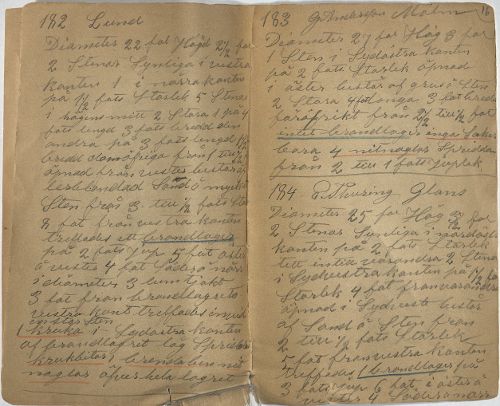 182 Lund
Diameter 22 fot Högd 2½ fot
2 Stenar Synliga i vestra
kanten 1 i norra kanten
på 1½ fots Storlek 5 Stenar
i högens mitt 2 Stora 1 på 4
fots lengd 3 fots bredd den
andra på 3 fots lengd 1½
bredd de öfriga från 1 till ½
öpnad från vester består af
lerblandad Sand ö myket
Sten från 3 till ½ fots Storlek
8 fot från vestra kanten
treffades ett brandlager
på 2 fots jup 5 fot öster
ö vester 4 fot Söder ö norr
i diameter 3 tum tjokt
3 fot från brandlagret o
vestra kant treffades en
1 kruka i Sydöstra kanten
af brandlagret låg Spridda
krukbitar brenda ben ned
naglar öfver hela lagret
183 G Anderson Malm 16
Diameter 27 fot Hög 3 fot
1 Sten i Sydöstra kanten
på 2 fots Storlek öpnad
i öster består af grus ö Sten
2 Stora 4 fot långa 3 fot breda
från 2½ till ½ fot
intet brandlager inga Saker
bara 4 nitnaglar Spridda
från 2 till 1 fots juplek
184 P. Thuring Glans
Diameter 25 fot Hög 3½ fot
2 Stenar Synliga i nordöstra
kanten på 2 fots Storlek
titt intill varandra 2 Stenar
i Sydvestra kanten på 1½ fots
Storlek 4 fot från varandra
öpnad i Sydvest består
af Sand ö Sten från
2 till ½ fots Storlek
5 fot från vestra kanten
treffades 1 brandlager på
3 fots jup 6 fot i öster ö
vester 4 Söder ö norr